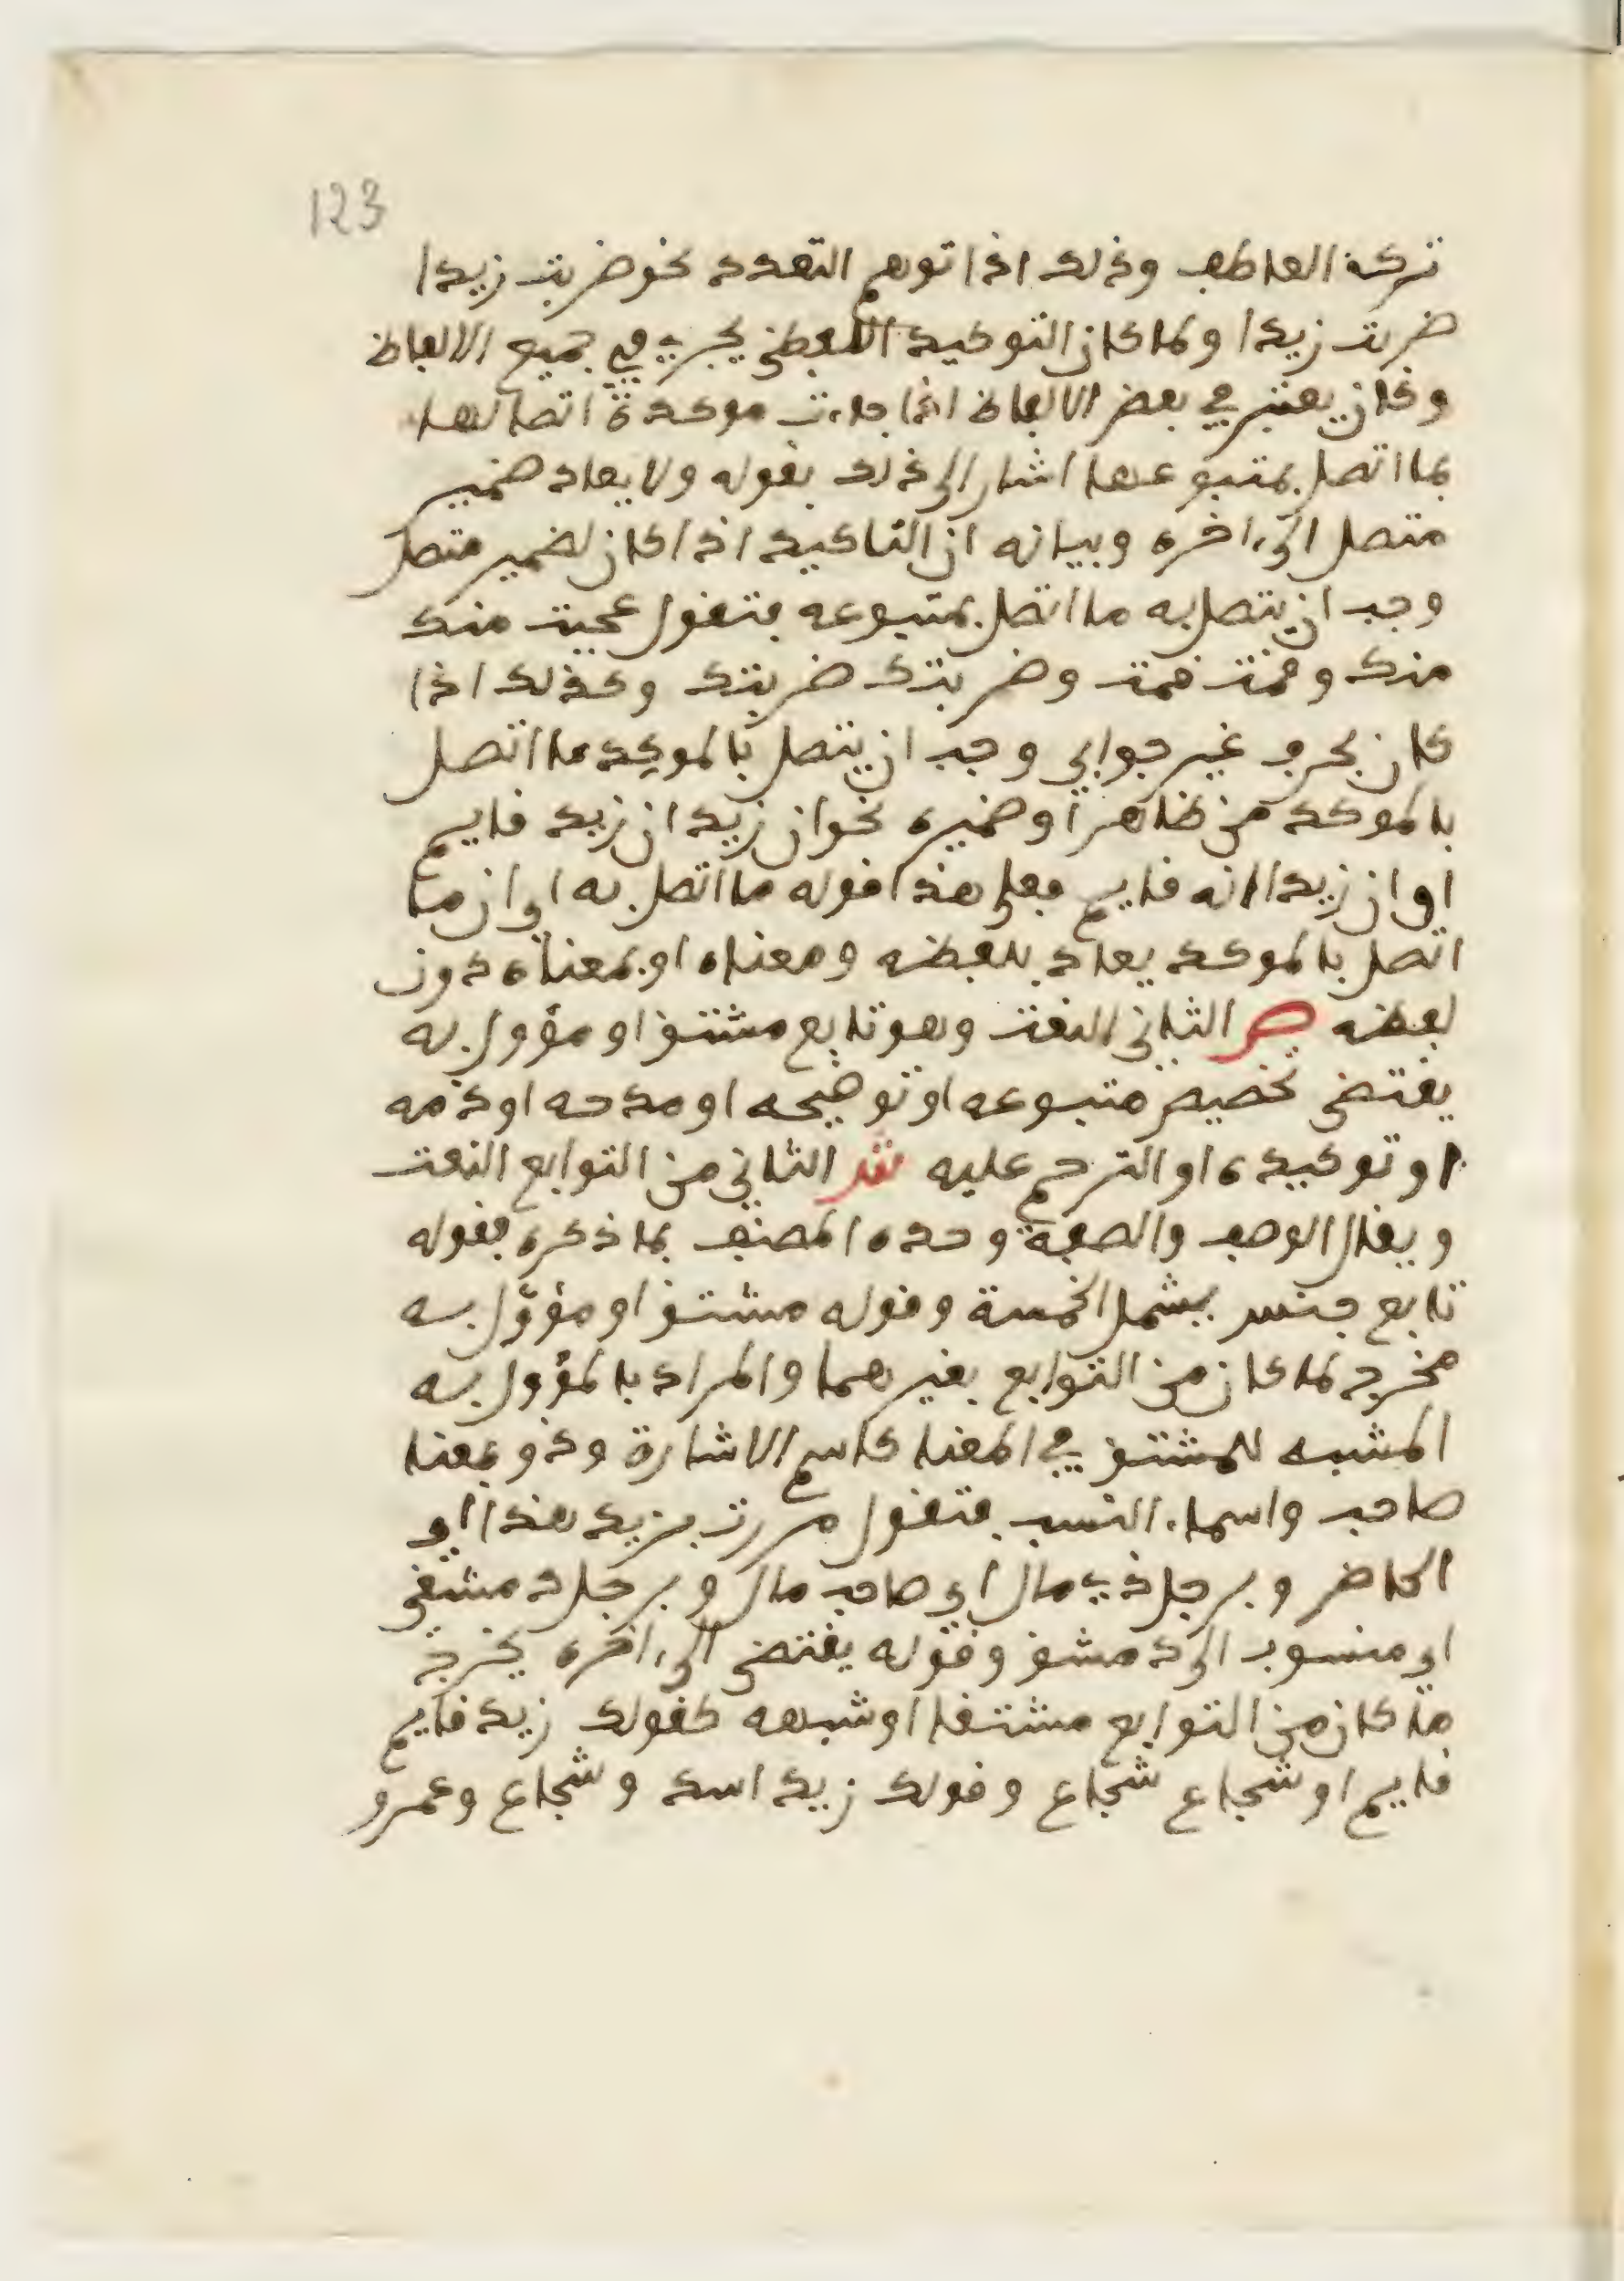 123
تركه العاطف وذلك اذا توهم التعدد نحو ضربت زيدا
ضربت زيدا ولما كان التوكيد اللفظي يجري في جميع الالفاظ
وكان يعتبر في بعض الالفاظ اذا جاءت موكدة اتصالها
بما اتصل بمتبوعها اشار الى ذلك بقوله ولا يعاد ضمير
متصل الى ءاخره وبيانه ان التاكيد اذا كان لضمير متصل
وجب ان يتصل به ما اتصل بمتبوعه فتقول عجبت منك
منك وقمت قمت وضربتك ضربتك وكذلك اذا
كان بحرف غير جوابي وجب ان يتصل بالموكد ما اتصل
بالموكد من ظاهر او ضميره نحو ان زيد ان زيد قايم
او ان زيدا انه قايم فعلى هذا قوله ما اتصل به اي ان ما
اتصل بالموكد يعاد بلفظه ومعناه او بمعناه دون
لفظه ص الثاني النعت وهو تابع مشتق او مؤول به
يقتضي تخصيص متبوعه او توضيحه او مدحه او ذمه
او توكيده او الترحم عليه ش الثاني من التوابع النعت
ويقال الوصف والصفة وحده المصنف بما ذكره فقوله
تابع جنس يشمل الخمسة وقوله مشتق او مؤول به
مخرج لما كان من التوابع بغيرهما والمراد بالمؤول به
المشبه للمشتق في المعنا كاسم الاشارة وذو بمعنا
صاحب واسماء النسب فتقول مررت بزيد هذا اي
الحاضر وبرجل ذي مال اي صاحب مال وبرجل دمشقي
اي منسوب الى دمشق وقوله يقتضي الى ءاخره يخرج
ما كان من التوابع مشتقا او شبهه كقولك زيد قايم
قايم او شجاع شجاع وقولك زيد اسد وشجاع وعمرو